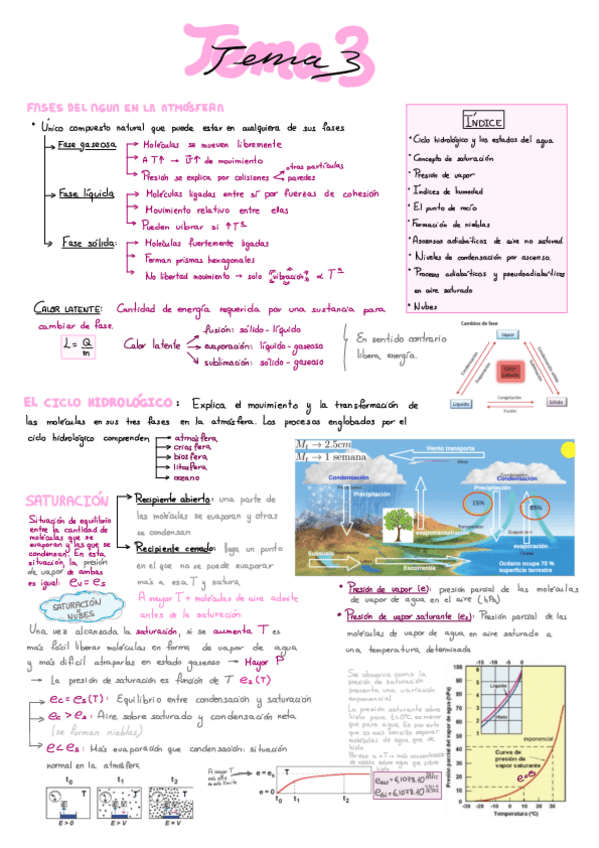 Tema 3
FASES DEL AGUA EN LA ATMÓSFERA
• Único compuesto natural que puede estar en cualquiera de sus fases
Fase gaseosa
Moléculas se mueven libremente
A T↑ → v↑ de movimiento
Presión se explica por colisiones
otras partículas
paredes
Fase líquida
Moléculas ligadas entre sí por fuerzas de cohesión
Movimiento relativo entre ellas
Pueden vibrar si ↑Tª
Fase sólida:
Moléculas fuertemente ligadas
Forman prismas hexagonales
No libertad movimiento → solo "vibración" ∝ Tª
ÍNDICE
• Ciclo hidrológico y los estados del agua
• Concepto de saturación
• Presión de vapor
• Índices de humedad
• El punto de rocío
• Formación de nieblas
• Ascensos adiabáticos de aire no saturad
• Niveles de condensación por ascenso
• Procesos adiabáticos y pseudoadiabáticos
en aire saturado
• Nubes
CALOR LATENTE: Cantidad de energía requerida por una sustancia para
cambiar de fase.
L = Q/m
Calor latente
fusión: sólido - líquido
evaporación: líquido - gaseoso
sublimación: sólido - gaseoso
En sentido contrario
libera energía.
Cambios de fase
Vapor
Condensación
Evaporación
Calor Latente
Sublimación
Líquido
Congelación
Fusión
Sólido
EL CICLO HIDROLÓGICO: Explica el movimiento y la transformación de
las moléculas en sus tres fases en la atmósfera. Los procesos englobados por el
ciclo hidrológico comprenden
atmósfera
criosfera
biosfera
litosfera
oceano
M₁ → 2.5cm
M₁ → 1 semana
Viento transporta
Condensación
Condensación
Precipitación
Precipitación
15%
85%
evapotranspiración
evaporación
Subsuelo
Escorrentía
Océano ocupa 70 %
superficie terrestre
SATURACIÓN
Situación de equilibrio
entre la cantidad de
moléculas que se
evaporan y las que se
condensan. En esta
situación, la presión
de vapor de ambas
es igual: eᵥ = eₛ
Recipiente abierto: una parte de
las moléculas se evaporan y otras
se condensan
Recipiente cerrado: llega un punto
en el que no se puede evaporar
más a esa T y satura
A mayor T + moléculas de aire admite
antes de la saturación
SATURACIÓN
=
NUBES
• Presión de vapor (e): presión parcial de las moléculas
de vapor de agua en el aire (hPa)
• Presión de vapor saturante (eₛ): Presión parcial de las
moléculas de vapor de agua en aire saturado a
una temperatura determinada
Una vez alcanzada la saturación, si se aumenta T es
más fácil liberar moléculas en forma de vapor de agua
y más difícil atraparlas en estado gaseoso → Mayor P
→ La presión de saturación es función de T eₛ(T)
e = eₛ(T): Equilibrio entre condensación y saturación
e > eₛ: Aire sobre saturado y condensación neta
(se forman nieblas)
e < eₛ: Más evaporación que condensación: situación
normal en la atmósfera
Se observa como la
presión de saturación
presenta una variación
exponencial
La presión saturante sobre
hielo para t<0°C es menor
que para agua. Es por esto
que es más sencillo separar
moléculas de agua que de
hielo
t₀
t₁
t₂
E > 0
E > V
E = V
A mayor T
e = eₛ
T
e = 0
t₀
t₁
t₂
Presión parcial del vapor de agua (hPa)
-15 -10 -5 0
Líquido
Hielo
exponencial
Curva de
presión de
vapor saturante
e=eₛ
100
90
80
70
60
50
40
30
20
10
0
-30 -20 -10 0 10 20 30
Temperatura (°C)